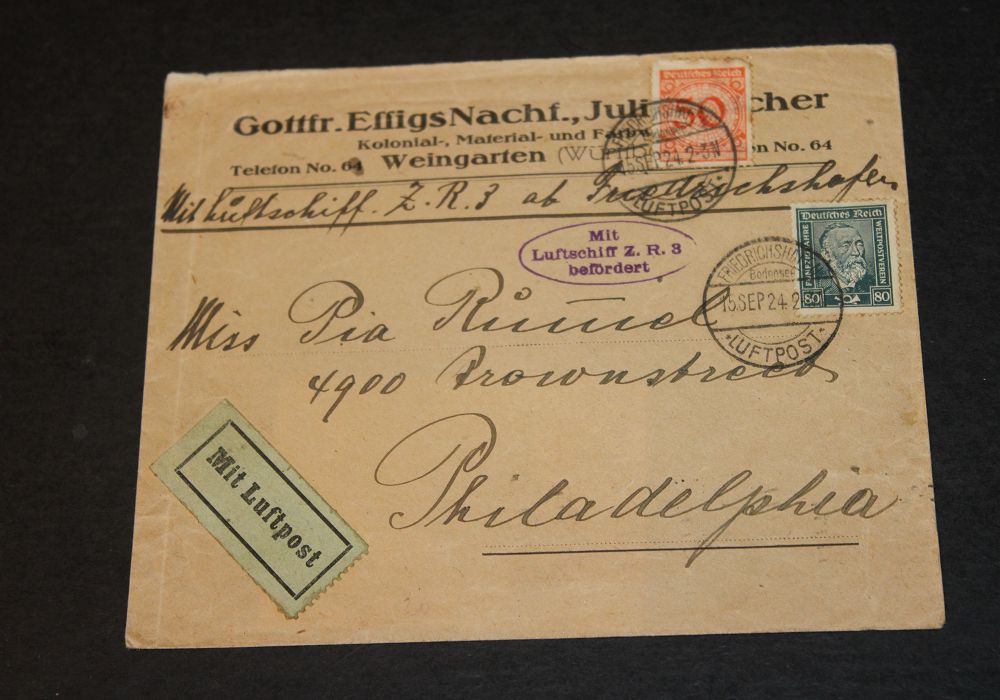 Gottfr. Effigs Nachf., Juli cher
Kolonial-, Material- und
Telefon No. 64 Weingarten (Württ. No. 64
Mit Luftschiff. Z. R. 3 ab Friedrichshafen
Deutsches Reich
50
FRIEDRICHSHAFEN
15.SEP.24.2-3N
LUFTPOST
Mit
Luftschiff Z. R. 3
befördert
Deutsches Reich
FÜNFZIG JAHRE
WELTPOSTVEREIN
80 80
FRIEDRICHSHAFEN
Bodensee
15.SEP.24.2
*LUFTPOST*
Miss Pia Rümmel
4900 Brownstreet
Philadelphia
Mit Luftpost